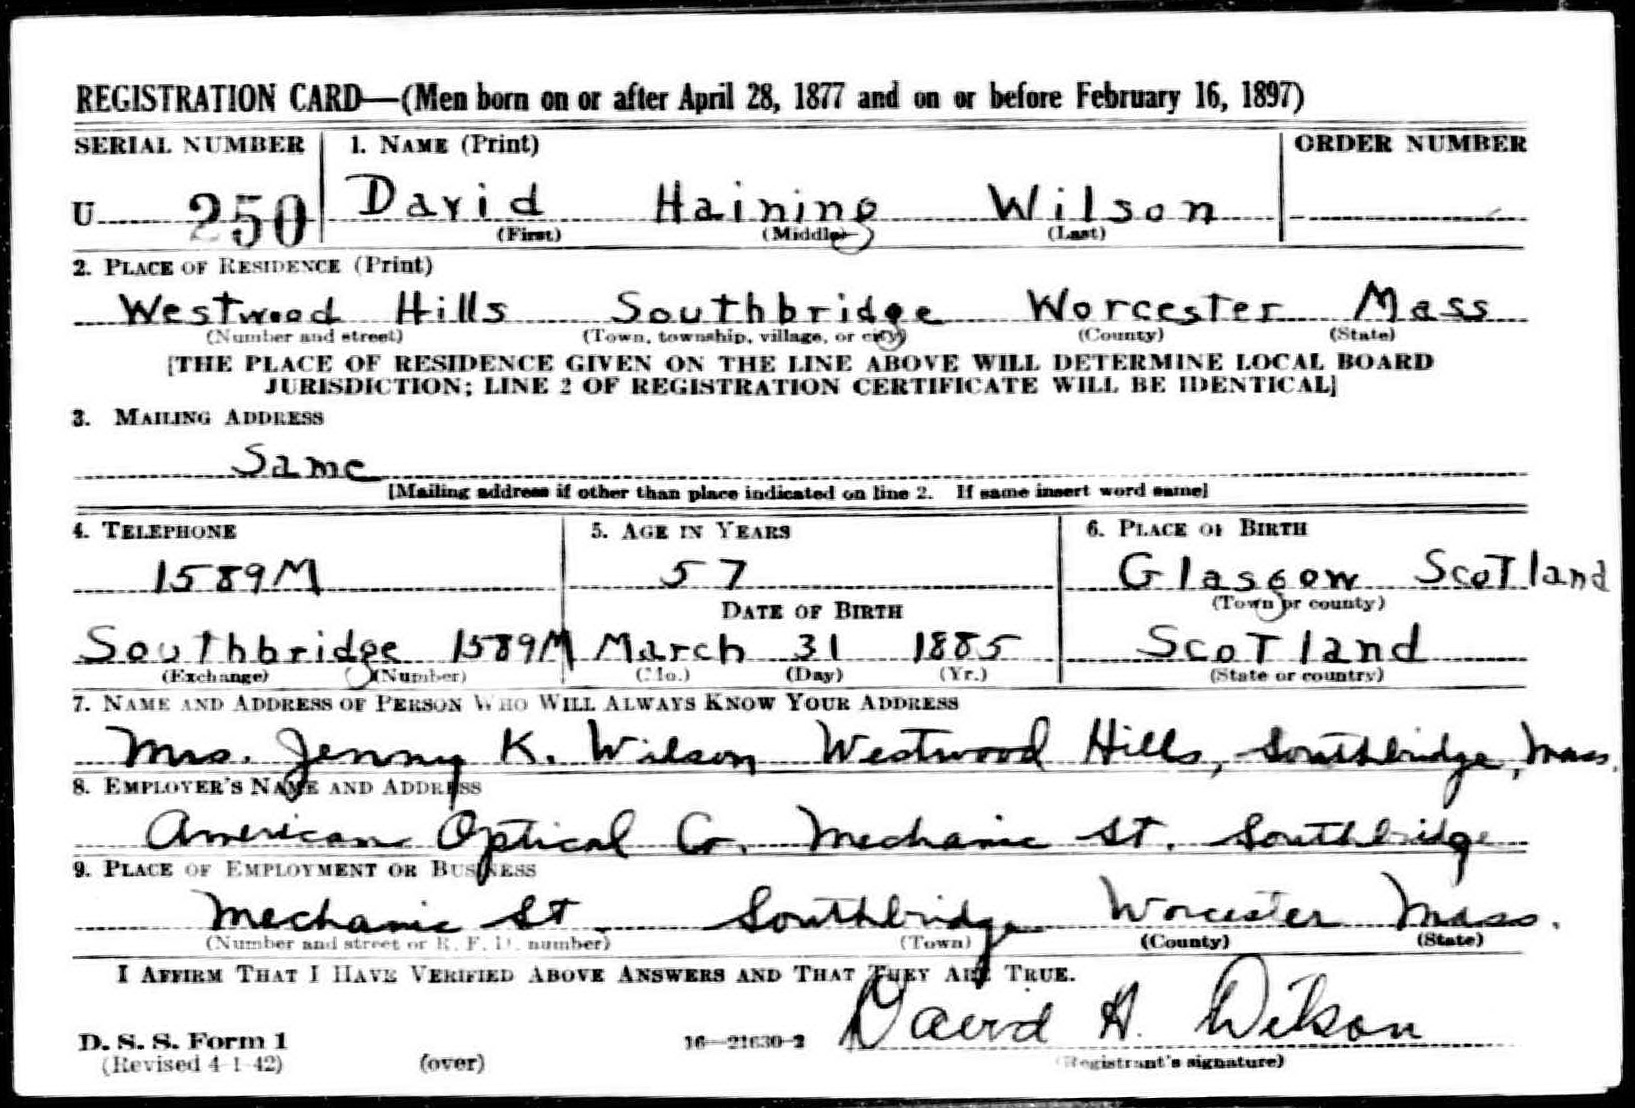 REGISTRATION CARD—(Men born on or after April 28, 1877 and on or before February 16, 1897)
SERIAL NUMBER 1. NAME (Print) ORDER NUMBER
U 250 David Haining Wilson
(First) (Middle) (Last)
2. PLACE OF RESIDENCE (Print)
Westwood Hills Southbridge Worcester Mass
(Number and street) (Town, township, village, or city) (County) (State)
[THE PLACE OF RESIDENCE GIVEN ON THE LINE ABOVE WILL DETERMINE LOCAL BOARD
JURISDICTION; LINE 2 OF REGISTRATION CERTIFICATE WILL BE IDENTICAL]
3. MAILING ADDRESS
Same
[Mailing address if other than place indicated on line 2. If same insert word same]
4. TELEPHONE 5. AGE IN YEARS 6. PLACE OF BIRTH
1589M 57 Glasgow Scotland
DATE OF BIRTH (Town or county)
Southbridge 1589M March 31 1885 Scotland
(Exchange) (Number) (Mo.) (Day) (Yr.) (State or country)
7. NAME AND ADDRESS OF PERSON WHO WILL ALWAYS KNOW YOUR ADDRESS
Mrs. Jenny K. Wilson Westwood Hills, Southbridge, Mass.
8. EMPLOYER'S NAME AND ADDRESS
American Optical Co. Mechanic St. Southbridge
9. PLACE OF EMPLOYMENT OR BUSINESS
Mechanic St. Southbridge Worcester Mass.
(Number and street or R. F. D. number) (Town) (County) (State)
I AFFIRM THAT I HAVE VERIFIED ABOVE ANSWERS AND THAT THEY ARE TRUE.
David H. Wilson
D. S. S. Form 1 16—21630-2
(Revised 4-1-42) (over) (Registrant's signature)